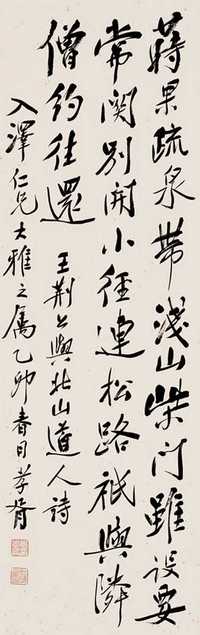 蒔果疏泉帶淺山柴門雖設要
常關別開小徑連松路祇與隣
僧約往還 王荊公與北山道人詩
入澤仁兄大雅之屬乙卯春日孝胥